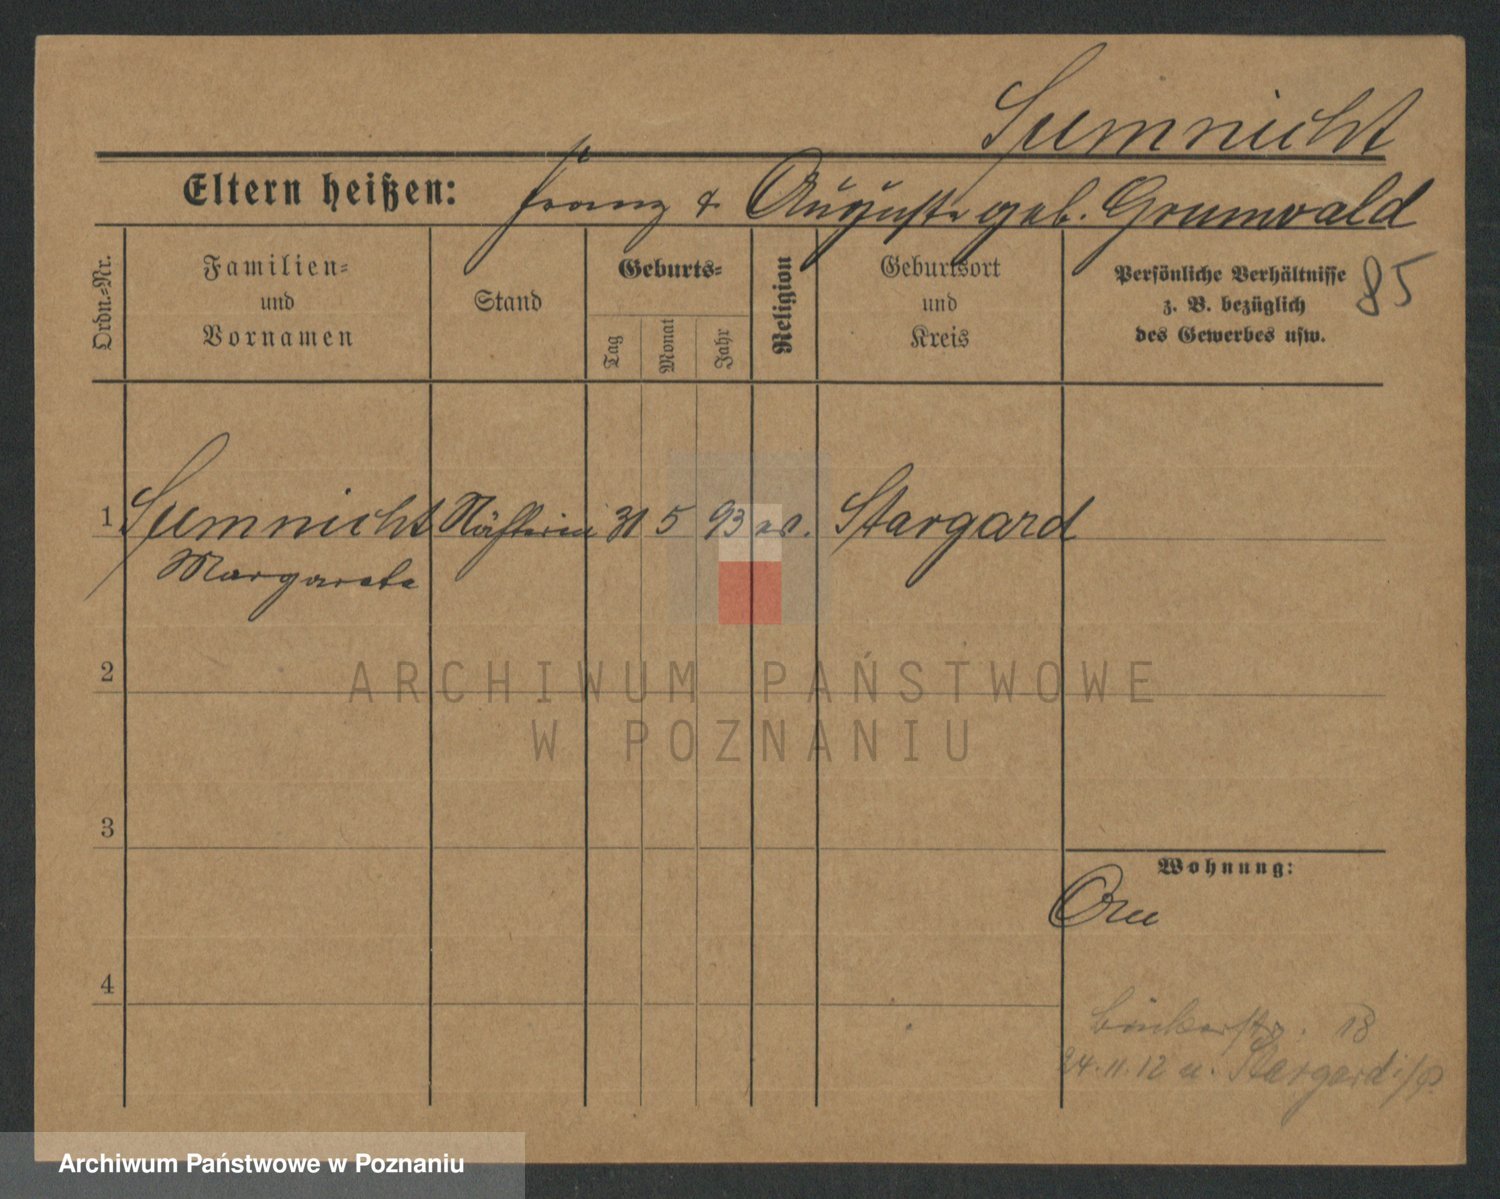 Sumnicht
Eltern heißen: Franz & Auguste geb. Grunwald
Ordn.=Nr.
Familien=
und
Vornamen
Stand
Geburts=
Tag
Monat
Jahr
Religion
Geburtsort
und
Kreis
Persönliche Verhältnisse
z. B. bezüglich
des Gewerbes usw.
85
1 Sumnicht Näherin 31 5 93 ev. Stargard
Margarete
ARCHIWUM PAŃSTWOWE
W POZNANIU
2
3
Wohnung:
4
18
24.11.12 n. Stargard i/P.
Archiwum Państwowe w Poznaniu